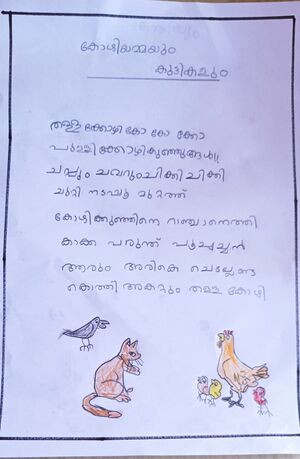 കോഴിയമ്മയും
കുട്ടികളും
തള്ള ക്കോഴി കോ കോ ക്കോ
പുള്ളിക്കോഴികുഞ്ഞുങ്ങൾ
ചപ്പും ചവറുംചിക്കിചിക്കി
ചുറ്റി നടപ്പൂ മുറ്റത്ത്
കോഴിക്കുഞ്ഞിനെ റാഞ്ചാനെത്തി
കാക്ക പരുന്ത് പൂച്ചച്ചൻ
ആരും അരികെ ചെല്ലേണ്ട
കൊത്തി അകറ്റും തള്ള കോഴി